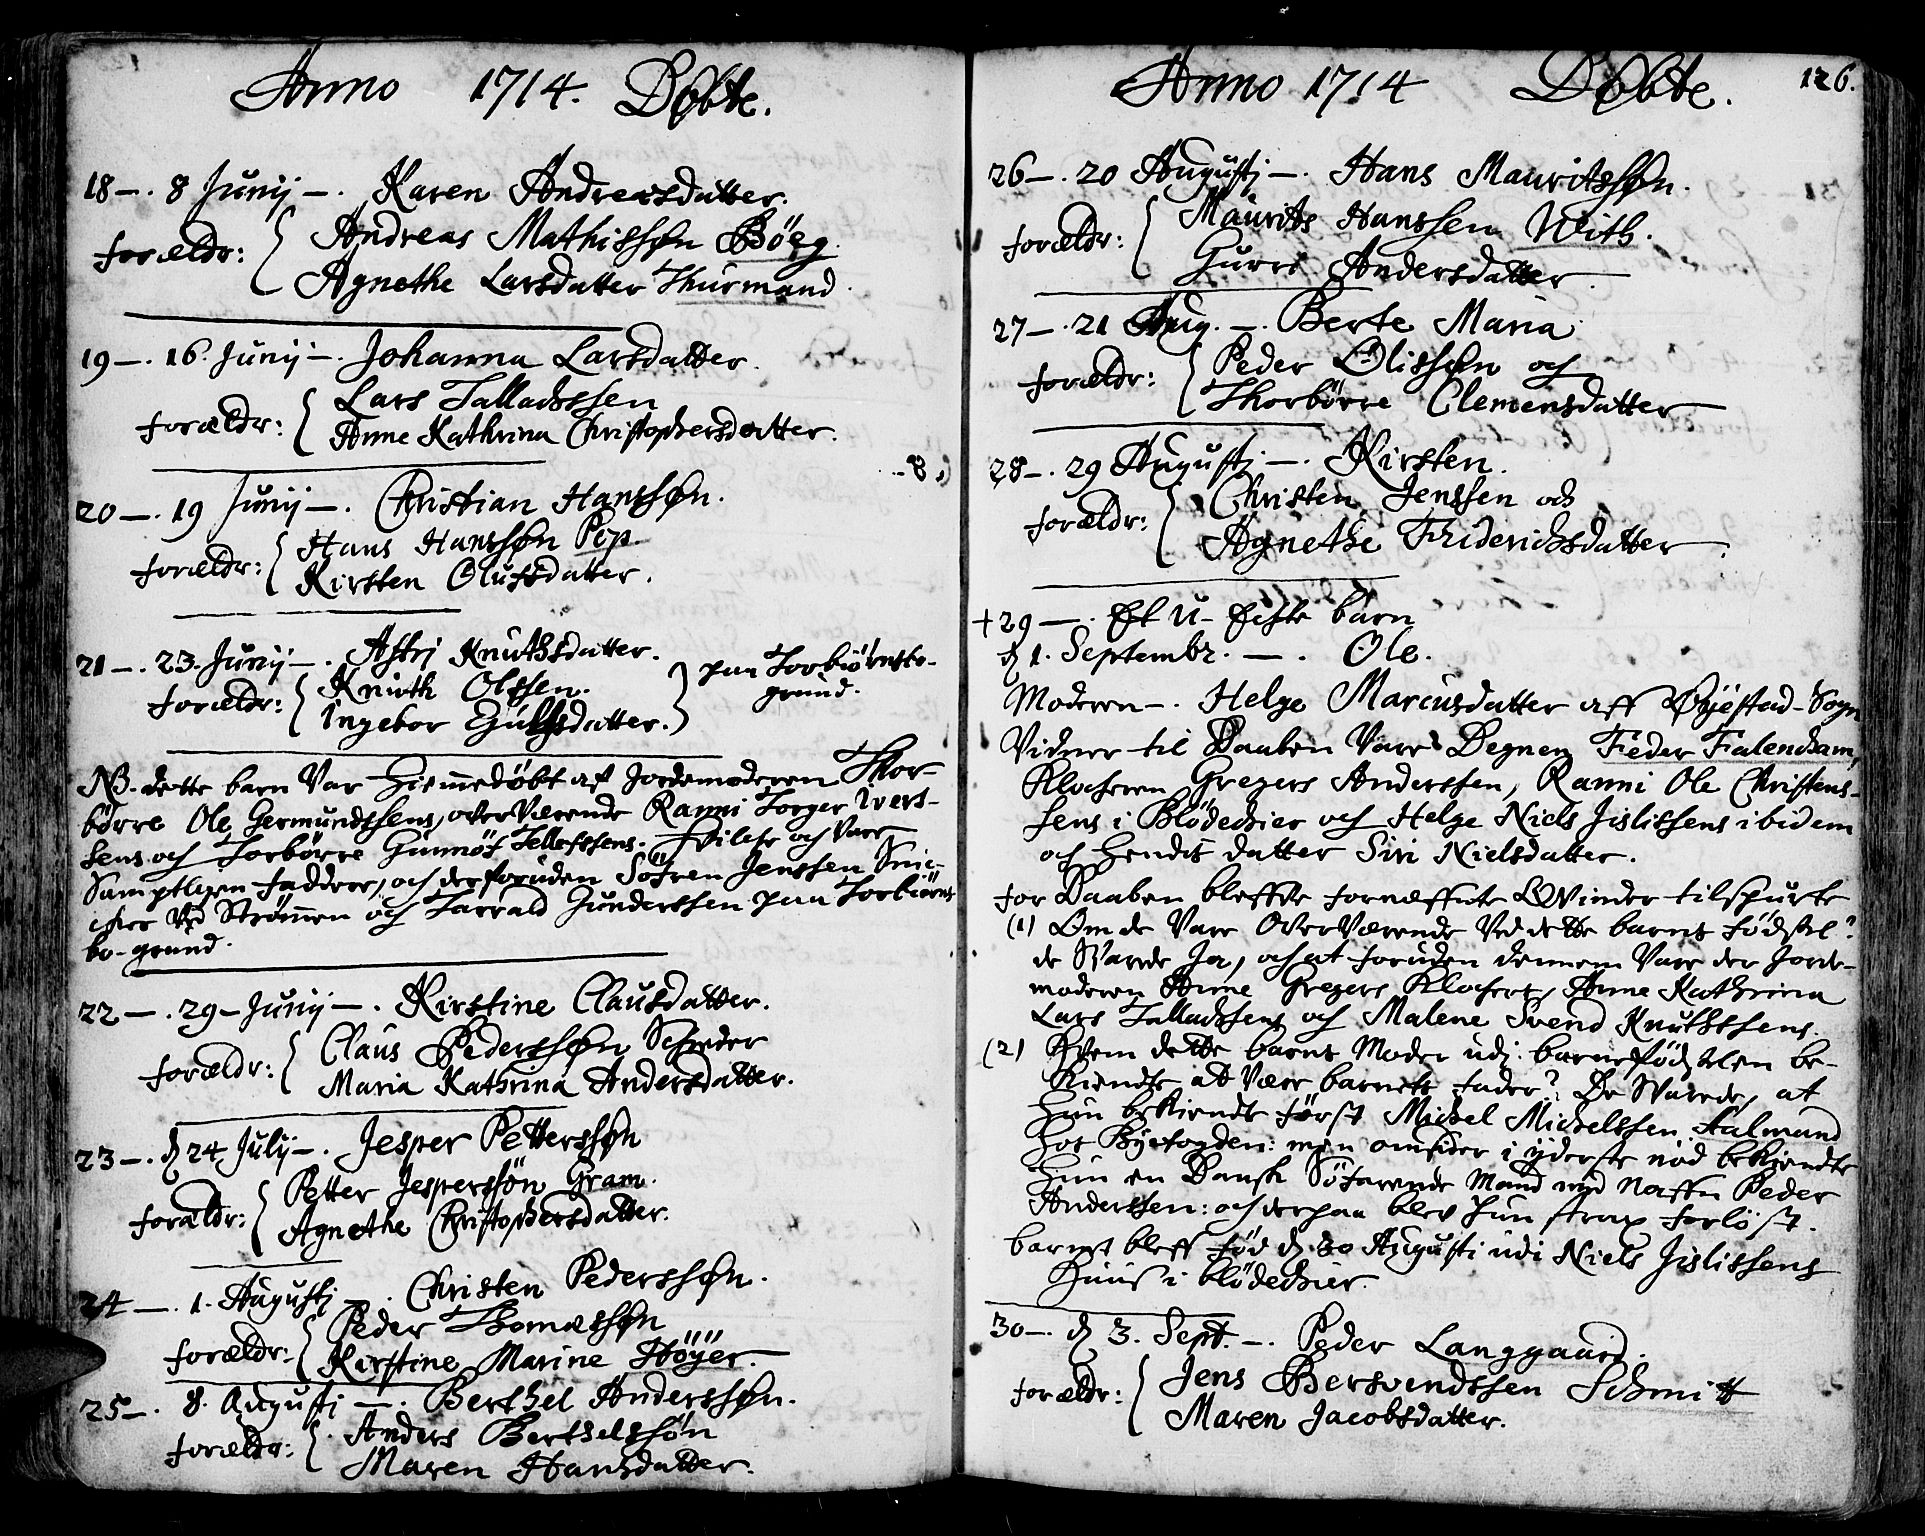 Anno 1714. Døbte.
18 —. 8 Junij —. Karen Andreæsdatter.
forældr: { Andreas Mathissøn Böeg.
Agnethe Larsdatter Thurmand.
19 —. 16. Junij —. Johanna Larsdatter.
forældr: { Lars Talladssen
Anne Kathrina Christophersdatter.
20 —. 19 Junij —. Christian Hanssøn.
forældr: { Hans Hanssøn Pep.
Kirsten Olufsdatter.
21 —. 23. Junij —. Astrj Knuthsdatter.
forældr: { Knuth Olssen. } paa Torbiörnsbo-
Ingebor Gulfsdatter. grund.
NB. dette barn Var Hiemmedöbt af Jordemoderen Thor-
börre Ole Germundssens, overværende Ranni Torger Ivers-
sens och Torbörre Gunnöf Tellefssens. Hvilche och Vare
Samptligen faddere, och desforuden Söfren Jenssen Snic-
icher Ved Strømmen och Tarrald Gunderssen paa Torbiörns
bo-grund.
22 —. 29 - Junij —. Kirstine Clausdatter.
forældr: { Claus Pederssøn Schrøder
Maria Kathrina Andersdatter.
23 —. d 24 Julij —. Jesper Petterssøn
forældr: { Petter Jesperssön Gram.
Agnethe Christophersdatter.
24 —. 1. Augustj —. Christen Pederssøn.
forældr: { Peder Thomæssøn
Kirstine Marine Höyer.
25 —. 8. Augustj —. Berthel Anderssøn.
forældr: { Anders Berthelssön
Maren Hansdatter.
Anno 1714 Døbte. 126.
26 —. 20 Augustj —. Hans Mauritssøn.
forældr: { Maurits Hanssen With.
Gurri Andersdatter.
27 —. 21 Aug. —. Berte Maria
forældr: { Peder Olissøn och
Thorbörre Clemensdatter
28 —. 29 Augustj —. Kirsten.
forældr: { Christen Jenssen och
Agnethe Friderichsdatter.
+ 29 —. Et U- Echte barn
d 1. Septembr. —. Ole.
Moderen —. Helge Marcusdatter aff Øyestad-Sogn
Vidner til Daaben Vare Degnen Feder Falencham,
Klocheren Gregers Anderssen, Ranni Ole Christens-
sens i Blödechier och Helge Niels Jislissens ibidem
och Hendis datter Siri Nielsdatter.
for Daaben bleffve fornæffnte QVinder tilspurte
(1) Om de Vare OverVærende Ved dette barns födsel?
de SVarede Ja, och at foruden dennem Vare der Jorde-
moderen Anne Gregers Klochers, Anne Kathrina
Lars Talladssens och Malene Svend Knuthssens.
(2) Hvem dette barns Moder udj barnsfødselen be-
kiendte at Være barnets fader? De SVarede, at
Hun bekiendte først Michel Michelssen Aalmand
hos Byefogden: men omsider i yderste nød bekiendte
Hun en Dansk Söfarende Mand ved Naffn Peder
Anderssen: och derpaa blev hun strax forlöst.
barnet bleff fød d 30 Augusti udi Niels Jislissens
Huus i blödechier.
30 —. d 3. Sept. —. Peder Langgaard.
forældr: { Jens Bersvendssen Schmitt
Maren Jacobsdatter.